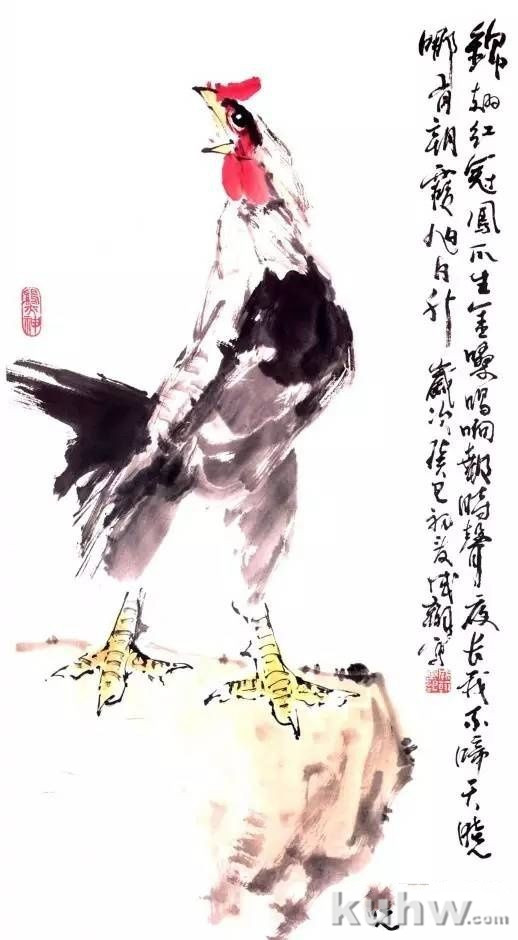 錦红冠鳳爪生金嗓唱响報時聲夜长我不啼天曉
哪有朝霞旭日升 歲次癸巳初夏寫
kuhw.com